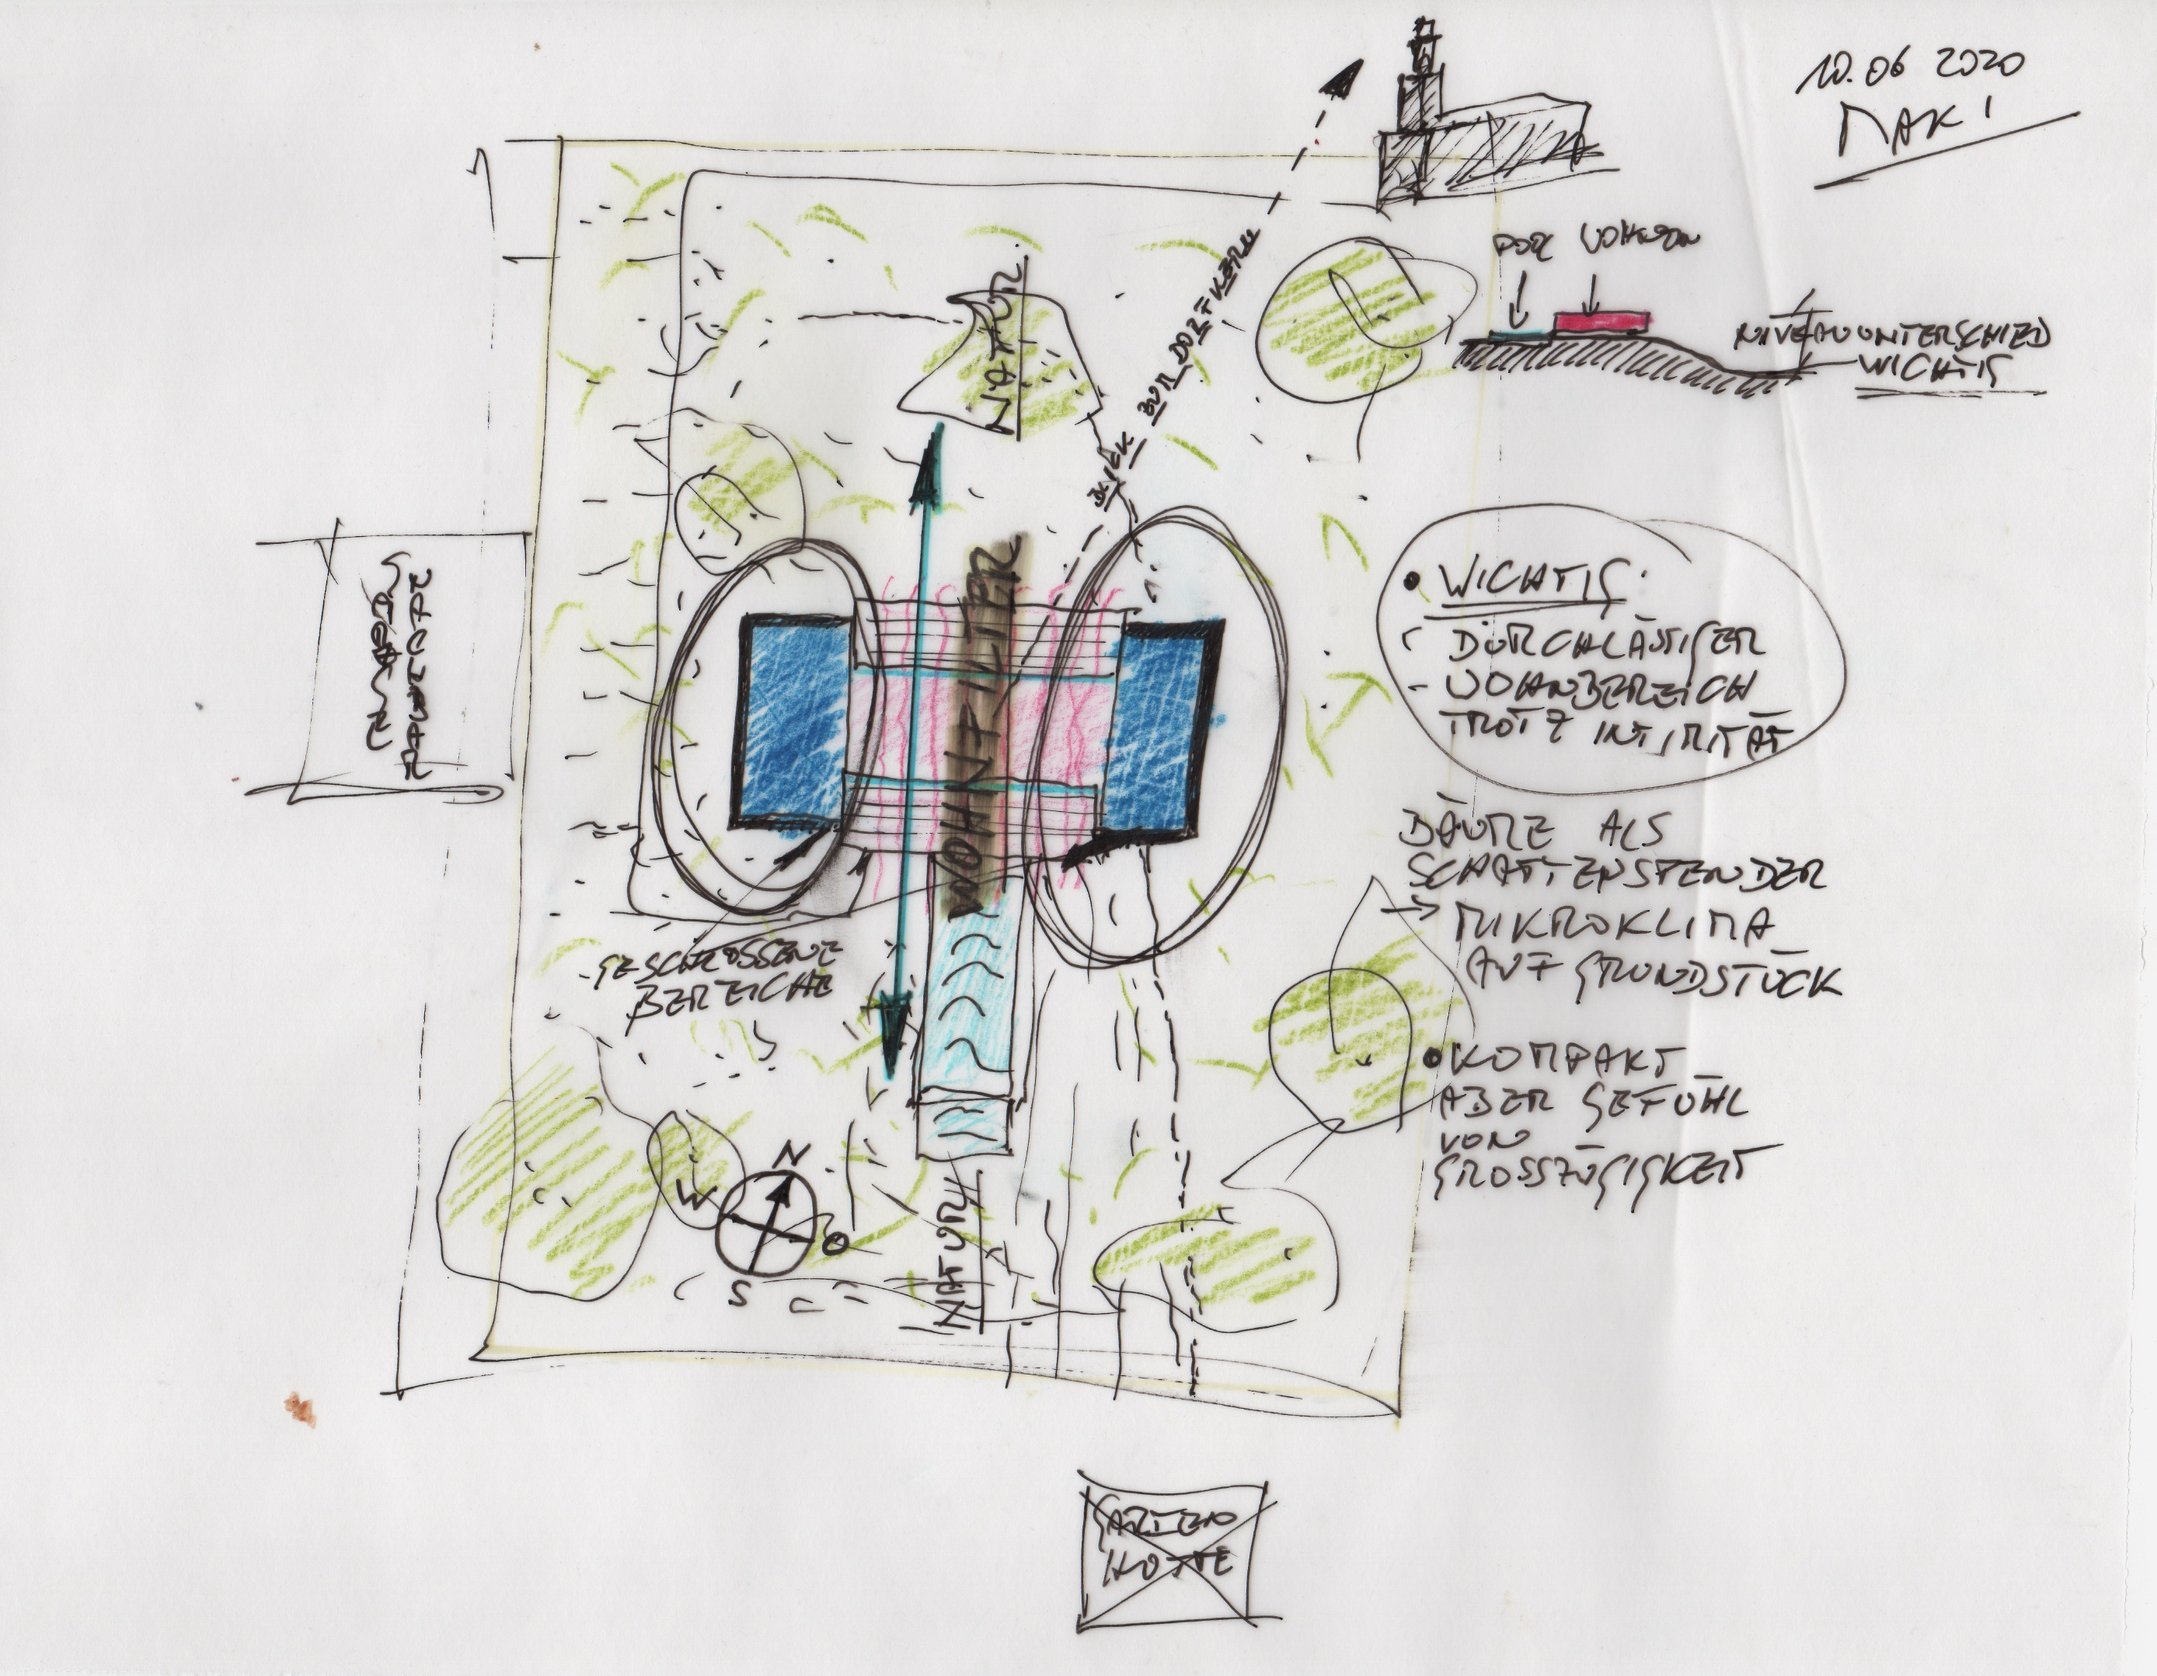 10.06 2020
MAKI
WOHNEN
NIVEAUUNTERSCHIED
WICHTIG
NATUR
BLICK ZUR DORFKERN
• WICHTIG:
DURCHLÄSSIGER
- WOHNBEREICH
TROTZ INTIMITÄT
WOHNFILTER
BÄUME ALS
SCHATTENSPENDER
→ MIKROKLIMA
AUF GRUNDSTÜCK
GESCHLOSSENE
BEREICHE
• KOMPAKT
ABER GEFÜHL
VON
GROSSZÜGIGKEIT
N
W
O
S
NATUR
GARTEN
HÜTTE